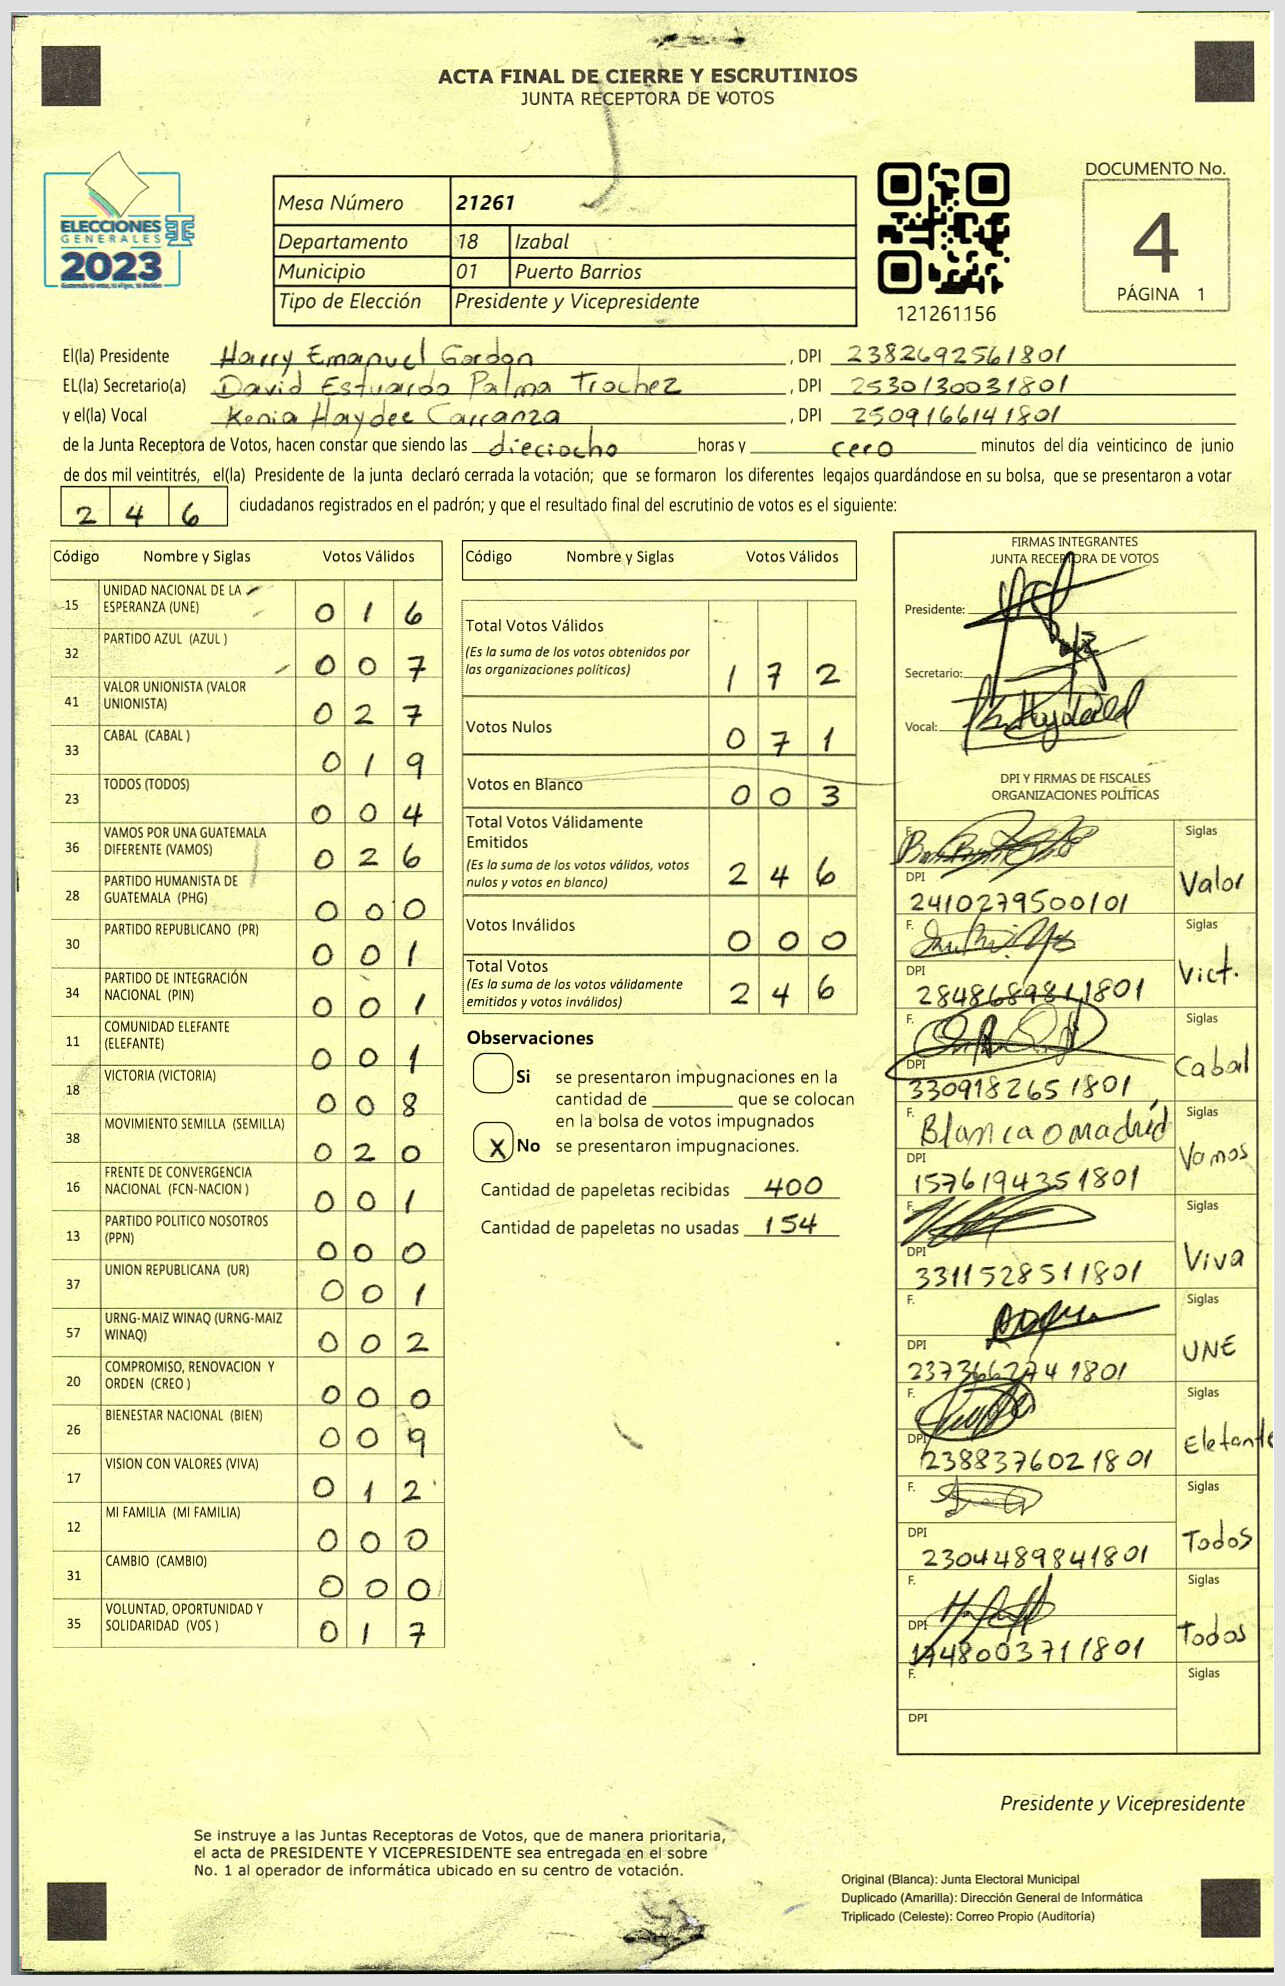 ACTA FINAL DE CIERRE Y ESCRUTINIOS
JUNTA RECEPTORA DE VOTOS
ELECCIONES
GENERALES
2023
Mesa Número 21261
Departamento 18 Izabal
Municipio 01 Puerto Barrios
Tipo de Elección Presidente y Vicepresidente
121261156
DOCUMENTO No.
4
PÁGINA 1
El(la) Presidente Harry Emanuel Gordon , DPI 2382692561801
EL(la) Secretario(a) David Estuardo Palma Trochez , DPI 2530130031801
y el(la) Vocal Kenia Haydee Carranza , DPI 2509166141801
de la Junta Receptora de Votos, hacen constar que siendo las dieciocho horas y cero minutos del día veinticinco de junio
de dos mil veintitrés, el(la) Presidente de la junta declaró cerrada la votación; que se formaron los diferentes legajos guardándose en su bolsa, que se presentaron a votar
246 ciudadanos registrados en el padrón; y que el resultado final del escrutinio de votos es el siguiente:
Código Nombre y Siglas Votos Válidos
15 UNIDAD NACIONAL DE LA
ESPERANZA (UNE) 016
32 PARTIDO AZUL (AZUL ) 007
41 VALOR UNIONISTA (VALOR
UNIONISTA) 027
33 CABAL (CABAL ) 019
23 TODOS (TODOS) 004
36 VAMOS POR UNA GUATEMALA
DIFERENTE (VAMOS) 026
28 PARTIDO HUMANISTA DE
GUATEMALA (PHG) 000
30 PARTIDO REPUBLICANO (PR) 001
34 PARTIDO DE INTEGRACIÓN
NACIONAL (PIN) 001
11 COMUNIDAD ELEFANTE
(ELEFANTE) 001
18 VICTORIA (VICTORIA) 008
38 MOVIMIENTO SEMILLA (SEMILLA) 020
16 FRENTE DE CONVERGENCIA
NACIONAL (FCN-NACION ) 001
13 PARTIDO POLITICO NOSOTROS
(PPN) 000
37 UNION REPUBLICANA (UR) 001
57 URNG-MAIZ WINAQ (URNG-MAIZ
WINAQ) 002
20 COMPROMISO, RENOVACION Y
ORDEN (CREO ) 000
26 BIENESTAR NACIONAL (BIEN) 009
17 VISION CON VALORES (VIVA) 012
12 MI FAMILIA (MI FAMILIA) 000
31 CAMBIO (CAMBIO) 000
35 VOLUNTAD, OPORTUNIDAD Y
SOLIDARIDAD (VOS ) 017
Código Nombre y Siglas Votos Válidos
Total Votos Válidos
(Es la suma de los votos obtenidos por
las organizaciones políticas) 172
Votos Nulos 071
Votos en Blanco 003
Total Votos Válidamente
Emitidos
(Es la suma de los votos válidos, votos
nulos y votos en blanco) 246
Votos Inválidos 000
Total Votos
(Es la suma de los votos válidamente
emitidos y votos inválidos) 246
Observaciones
Si se presentaron impugnaciones en la
cantidad de ________ que se colocan
en la bolsa de votos impugnados
X No se presentaron impugnaciones.
Cantidad de papeletas recibidas 400
Cantidad de papeletas no usadas 154
FIRMAS INTEGRANTES
JUNTA RECEPTORA DE VOTOS
Presidente:
Secretario:
Vocal:
DPI Y FIRMAS DE FISCALES
ORGANIZACIONES POLÍTICAS
F. Siglas
DPI Valor
2410279500101
F. Siglas
DPI Vict.
2848689811801
F. Siglas
DPI Cabal
3309182651801
F. Blanca O madrid Siglas
DPI Vamos
1576194351801
F. Siglas
DPI Viva
3311528511801
F. Siglas
DPI UNE
2373662741801
F. Siglas
DPI Elefante
2388376021801
F. Siglas
DPI Todos
2304489841801
F. Siglas
DPI Todos
1748003711801
F. Siglas
DPI
Presidente y Vicepresidente
Se instruye a las Juntas Receptoras de Votos, que de manera prioritaria,
el acta de PRESIDENTE Y VICEPRESIDENTE sea entregada en el sobre
No. 1 al operador de informática ubicado en su centro de votación.
Original (Blanca): Junta Electoral Municipal
Duplicado (Amarilla): Dirección General de Informática
Triplicado (Celeste): Correo Propio (Auditoría)